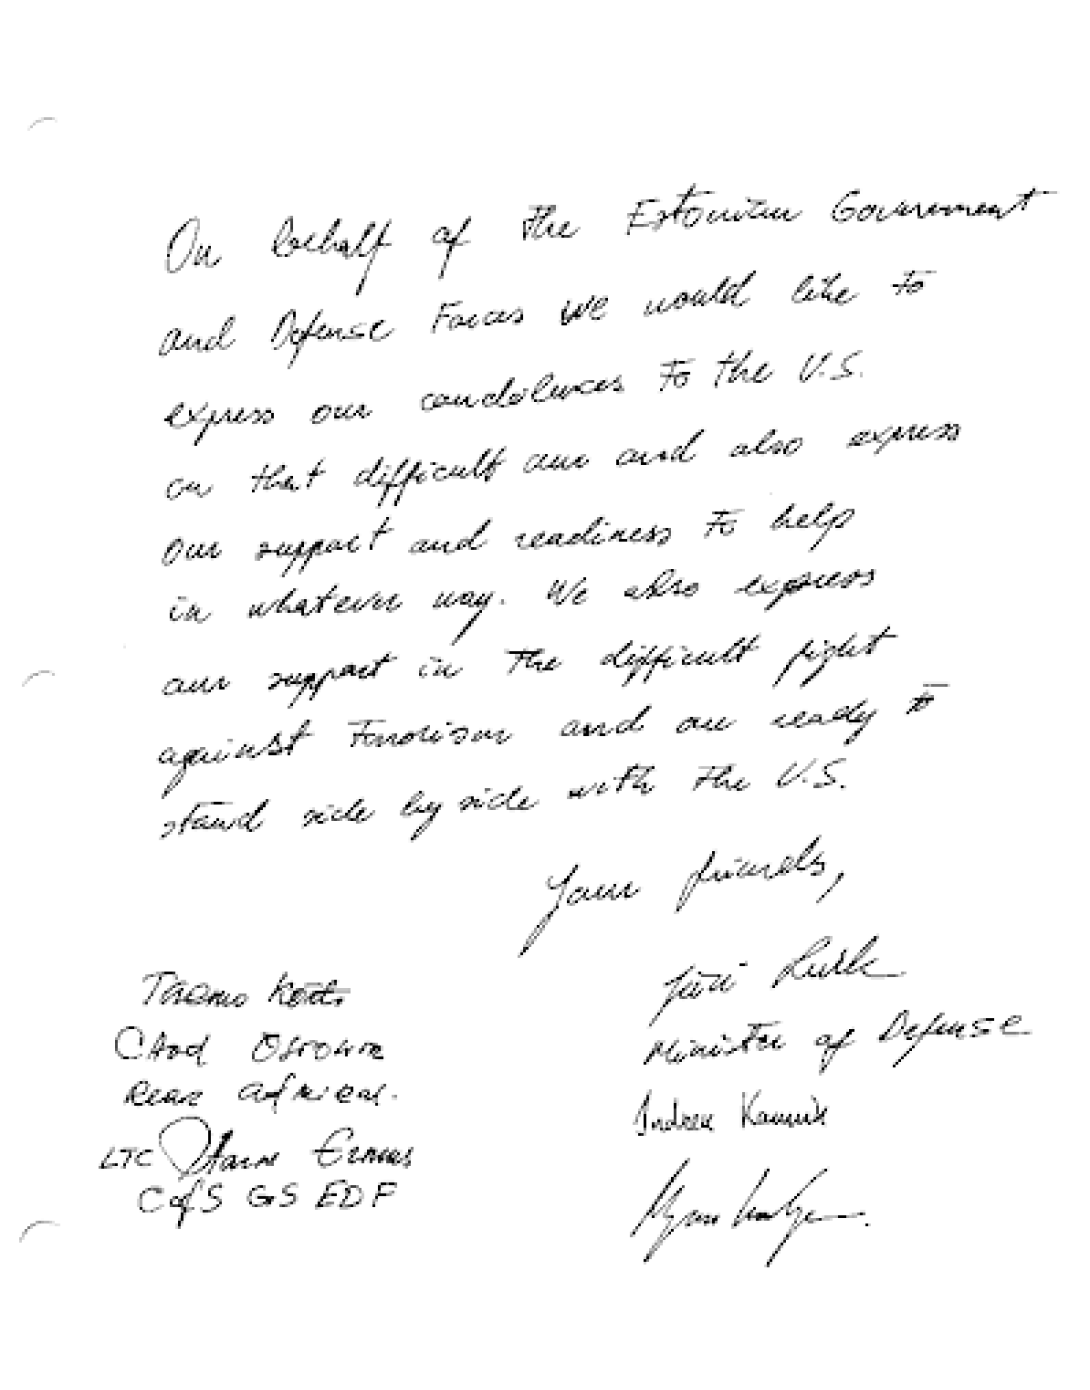 On behalf of the Estonian Government
and Defense Forces we would like to
express our condolences to the U.S.
on that difficult and also express
our support and readiness to help
in whatever way. We also express
our support in the difficult fight
against Terrorism and are ready to
stand side by side with the U.S.
Your friends,
Jüri Luik
Minister of Defense
Indrek Kannik
Tarmo Kõuts
CHOD
Rear Admiral.
LTC Ermus
CofS GS EDF